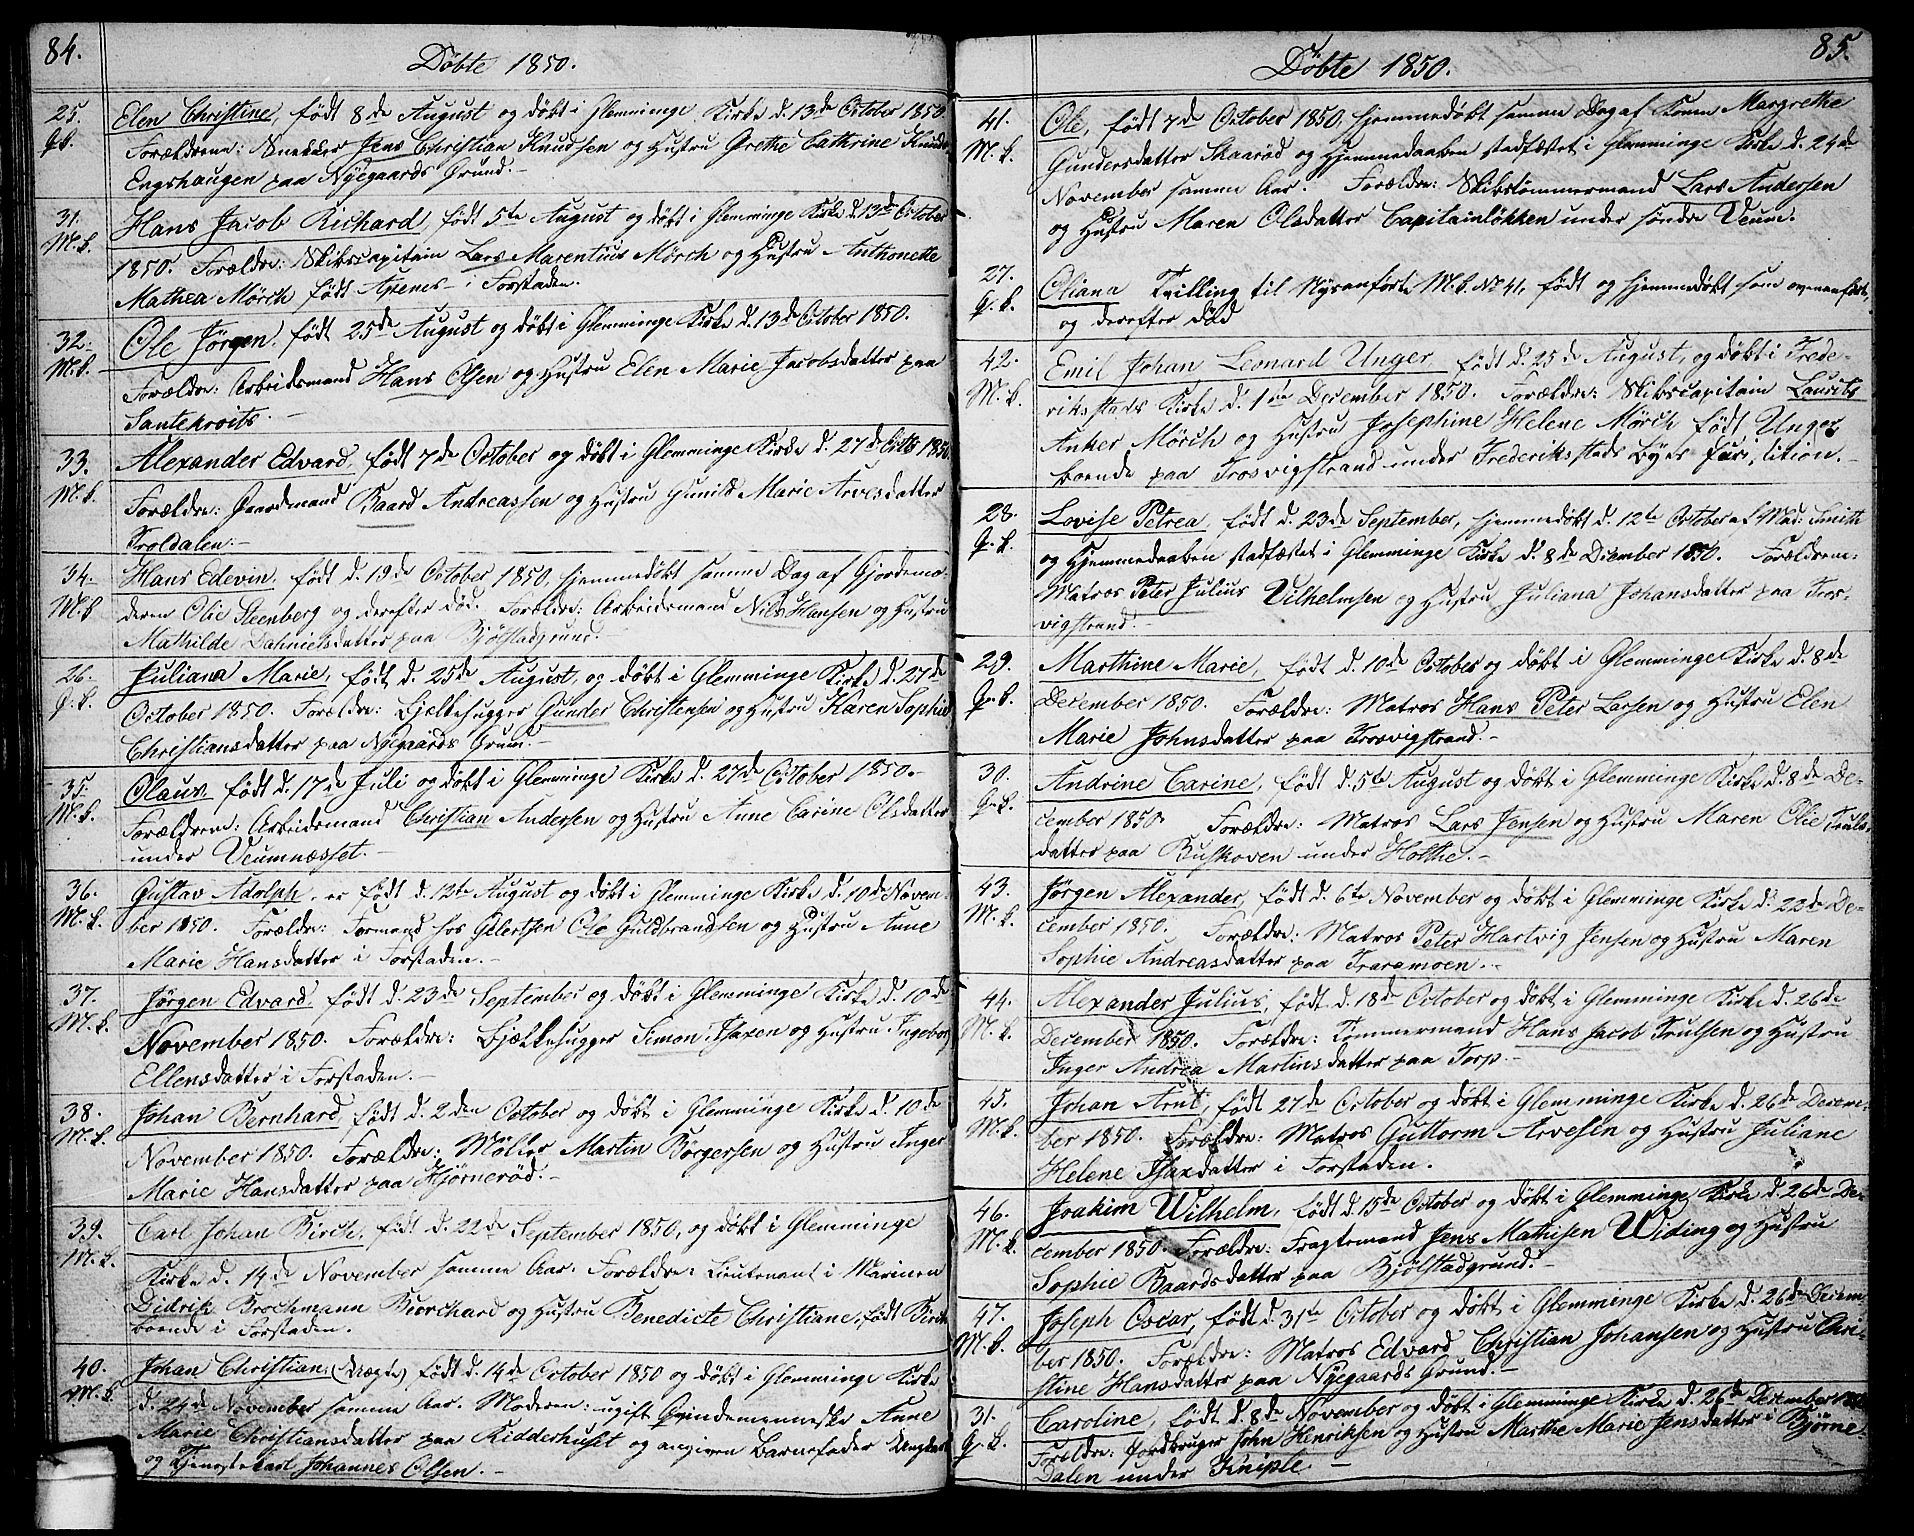 84.
Døbte 1850.
25. Elen Christine, født 8de August og døbt i Glemminge Kirke d. 13de October 1850.
Q.k. Forældrene: Snekker Jens Christian Knudsen og Hustru Grethe Cathrine Knuds
Engshaugen paa Nyegaards Grund.-
31. Hans Jacob Richard, født 5te August og døbt i Glemminge Kirke d. 13de October
M.k. 1850. Forældre: Skibscapitain Lars Marentius Mörch og Hustru Anthonette
Mathea Mörch født Apenes - i Forstaden.
32. Ole Jørgen, født 25de August og døbt i Glemminge Kirke d. 13de October 1850.
M.k. Forældre: Arbeidsmand Hans Olsen og Hustru Elen Marie Jacobsdatter paa
Santekroits.-
33. Alexander Edvard, født 7de October og døbt i Glemminge Kirke d. 27de Octb 1850
M.k. Forældre: Gaardmand Baard Andreassen og Hustru Gunild Marie Arvesdatter
Troldalen.-
34. Hans Edevin, født d. 19de October 1850, hjemmedøbt samme Dag af Gjordemo-
M.k. deren Olie Steenberg og derefter død. Forældre: Arbeidsmand Nils Hansen og Hustru
Mathilde Dahnielsdatter paa Bjølstadgrund.-
26. Juliana Marie, født d. 25de August, og døbt i Glemminge Kirke d. 27de
Q.k. October 1850. Forældre: Bjelkehugger Gunder Christensen og Hustru Karen Sophie
Christiansdatter paa Nyegaards Grund.-
35. Olaus, født d. 17de Juli og døbt i Glemminge Kirke d. 27de October 1850.-
M.k. Forældrene: Arbeidsmand Christian Andersen og Hustru Anne Carine Olsdatter
under Veumnæsset.-
36. Gustav Adolph, er født d. 12te August og døbt i Glemminge Kirke d. 10de Novem-
M.k. ber 1850. Forældre: Formand hos Gelertsen Ole Guldbrandsen og Hustru Anne
Marie Hansdatter i Forstaden.-
37. Jørgen Edvard, født d. 23de September og døbt i Glemminge Kirke d. 10de
M.k. November 1850. Forældre: Bjælkehugger Simon Isaxen og Hustru Ingeborg
Ellensdatter i Forstaden.-
38. Johan Bernhard, født d. 2den October og døbt i Glemminge Kirke d. 10de
M.k. November 1850. Forældre: Møller Martin Børgersen og Hustru Inger
Marie Hansdatter paa Hjørnerød.-
39. Carl Johan Birch, født d. 22de September 1850, og døbt i Glemminge
M.k. Kirke d. 14de November samme Aar. Forældre: Lieutenant i Marinen
Didrik Brochmann Borchard og Hustru Benedicte Christiane, født Birch
boende i Forstaden.
40. Johan Christian, (Uægte) født d. 14de October 1850 og døbt i Glemminge Kirke
M.k. d. 24de November samme Aar. Moderen: ugift Qvindemenneske Anne
Marie Christiansdatter paa Ridderhuset og angiven Barnefader Ungkarl
og Tjenestekarl Johannes Olsen.-
85.
Døbte 1850.
41. Ole, født 7de October 1850, hjemmedøbt samme Dag af Konen Margrethe
M.k. Gundersdatter Skaarød og Hjemmedaaben stadfæstet i Glemminge Kirke d. 24de
November samme Aar. Forældre: Skibstømmermand Lars Andersen
og Hustru Maren Olsdatter Capitainløkken under søndre Veum.
27. Oliana Tvilling til Nysanførte M.k. No 41, født og hjemmedøbt som ovenanført,
Q.k. og derefter død
42. Emil Johan Leonard Unger født d. 25de August, og døbt i Frede-
M.k. rikstads Kirke d. 1ste December 1850. Forældre: Skibscapitain Laurits
Anker Mörch og Hustru Josephine Helene Mörch født Unger,
boende paa Trosvigstrand under Frederikstads Byes Jurisdition.-
28. Lovise Petrea, født d. 23de September, hjemmedøbt d. 12te October af Mad: Smith
Q.k. og Hjemmedaaben stadfæstet i Glemminge Kirke d. 8de December 1850. Forældrene:
Matros Peter Julius Vilhelmsen og Hustru Juliana Johansdatter paa Tros-
vigstrand.-
29. Marthine Marie, født d. 10de October og døbt i Glemminge Kirke d. 8de
Q.k. December 1850. Forældre: Matros Hans Peter Larsen og Hustru Elen
Marie Johnsdatter paa Trosvigstrand.-
30. Andrine Carine, født d. 5te August og døbt i Glemminge Kirke d. 8de De-
Q.k. cember 1850. Forældre: Matros Lars Jensen og Hustru Maren Olie Truls-
datter paa Buskoven under Holthe.-
43. Jørgen Alexander, født d. 6te November og døbt i Glemminge Kirke d. 22de De-
M.k. cember 1850. Forældre: Matros Peter Hartvig Jensen og Hustru Maren
Sophie Andreasdatter paa Traramoen.-
44. Alexander Julius, født d. 18de October og døbt i Glemminge Kirke d. 26de
M.k. December 1850. Forældre: Tømmermand Hans Jacob Trulsen og Hustru
Inger Andrea Martinsdatter paa Torp.-
45. Johan Arnt, født 27de October og døbt i Glemminge Kirke d. 26de Decem-
M.k. ber 1850. Forældre: Matros Guttorm Arvesen og Hustru Juliane
Helene Isaxdatter i Forstaden.
46. Joakim Wilhelm, født d. 15de October og døbt i Glemminge Kirke d. 26de De-
M.k. cember 1850. Forældre: Fragtemand Jens Mathisen Widing og Hustru
Sophie Baardsdatter paa Bjølstadgrund.-
47. Joseph Oscar, født d. 31te October og døbt i Glemminge Kirke d. 26de Decem-
M.k. ber 1850. Forældre: Matros Edvard Christian Johansen og Hustru Chri-
stine Hansdatter paa Nyegaards Grund.-
31. Caroline, født d. 8de November og døbt i Glemminge Kirke d. 26de December 1850
Q.k. Forældre: Jordbruger John Henriksen og Hustru Marthe Marie Jensdatter i Bjørne-
Dalen under Kniple.-